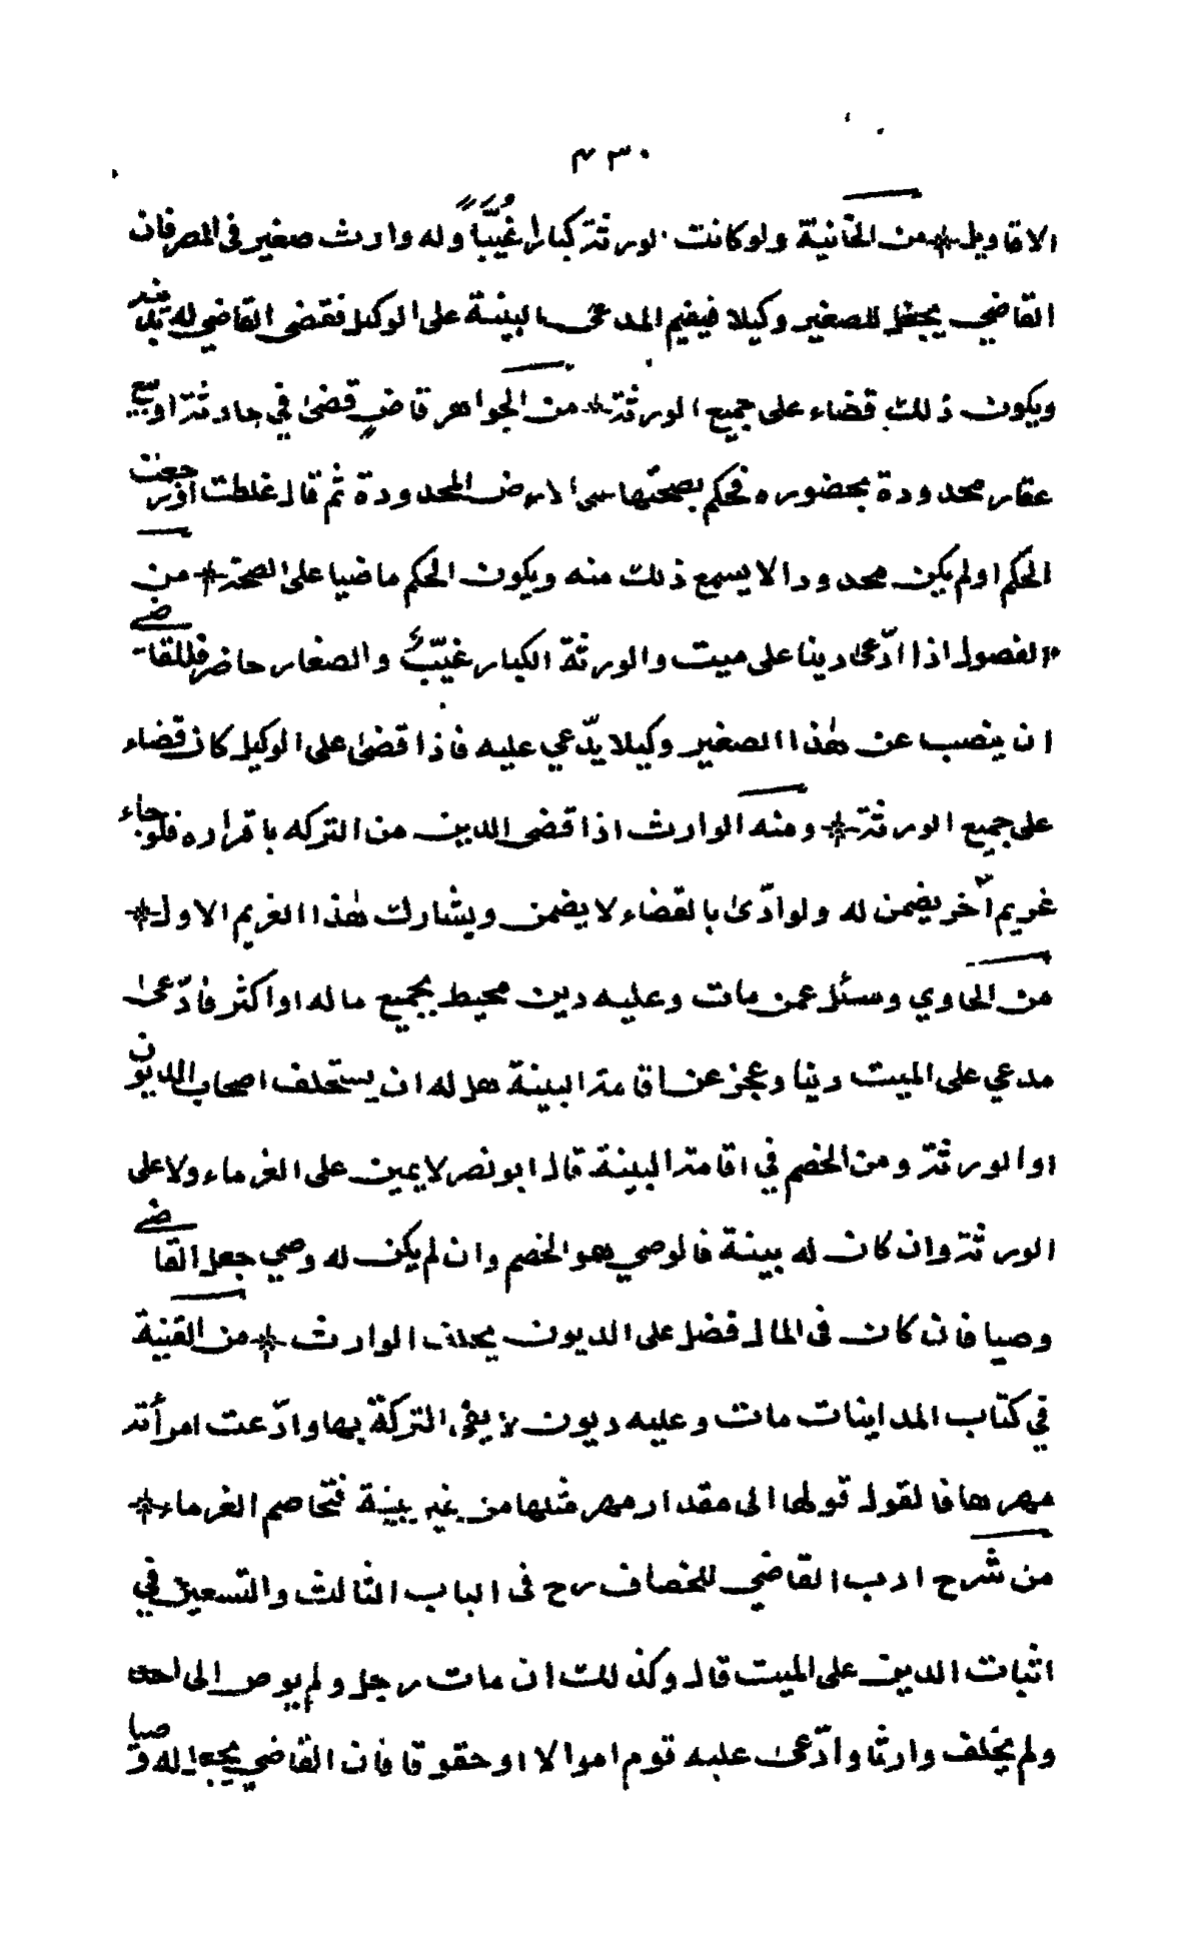 ٤٣٠
الاقاويل * من الخانية ولو كانت الورثة كبارا غُيَّبًا وله وارث صغير فى المصر فان
القاضي يجعل للصغير وكيلا فيقيم المدعى البينة على الوكيل فقضى القاضي له ينفذ
ويكون ذلك قضاء على جميع الورثة * من الجواهر قاضٍ قضىٰ في حادثة او بيع
عقار محدودة بحضوره فحكم بصحتها سمى الارض المحدودة ثم قال غلطت او رجعت
الحكم او لم يكن محدودا لا يسمع ذلك منه ويكون الحكم ماضيا على الصحة * من
الفصول اذا ادّعىٰ دينا على ميت والورثة الكبار غيّبٌ والصغار حاضر فللقاضي
ان ينصب عن هٰذا الصغير وكيلا يدّعي عليه فاذا قضىٰ على الوكيل كان قضاء
على جميع الورثة * ومنه الوارث اذا قضى الدين من التركه باقراره فلو جاء
غريم آخر يضمن له ولو ادّىٰ بالقضاء لا يضمن ويشارك هٰذا الغريم الاول *
من الحاوي وسئل عمن مات وعليه دين محيط بجميع ماله او اكثر فادّعىٰ
مدعي على الميت دينا وعجز عن اقامة البينة هل له ان يستحلف اصحاب الديون
او الورثة ومن الخصم في اقامة البينة قال ابو نصر لا يمين على الغرماء ولا على
الورثة وان كان له بينة فالوصي هو الخصم وان لم يكن له وصي جعل القاضي
وصيا فان كان فى المال فضل على الديون يحلف الوارث * من القنية
في كتاب المداينات مات وعليه ديون لا يفي التركة بها وادّعت امرأته
مهرها فالقول قولها الى مقدار مهر مثلها من غير بينة فتخاصم الغرماء *
من شرح ادب القاضي للخصاف رح فى الباب الثالث والتسعين في
اثبات الدين على الميت قال وكذلك ان مات رجل ولم يوص الى احد
ولم يخلف وارثا وادّعىٰ عليه قوم اموالا او حقوقا فان القاضي يجعل له وصيا